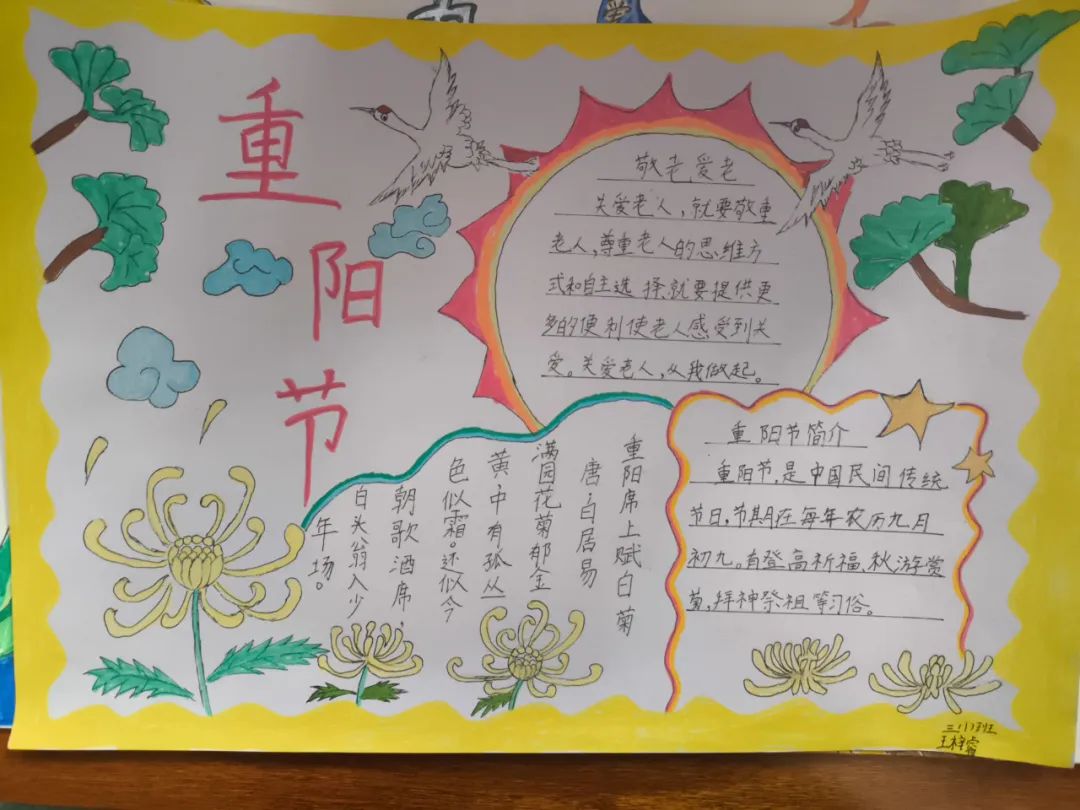 重阳节
敬老爱老
关爱老人,就要敬重
老人,尊重老人的思维方
式和自主选择,就要提供更
多的便利使老人感受到关
爱。关爱老人,从我做起。
重阳席上赋白菊
唐·白居易
满园花菊郁金
黄中有孤丛
色似霜。还似今
朝歌酒席,
白头翁入少
年场。
重阳节简介
重阳节,是中国民间传统
节日,节期在每年农历九月
初九。有登高祈福、秋游赏
菊,拜神祭祖等习俗。
三(1)班
王梓睿